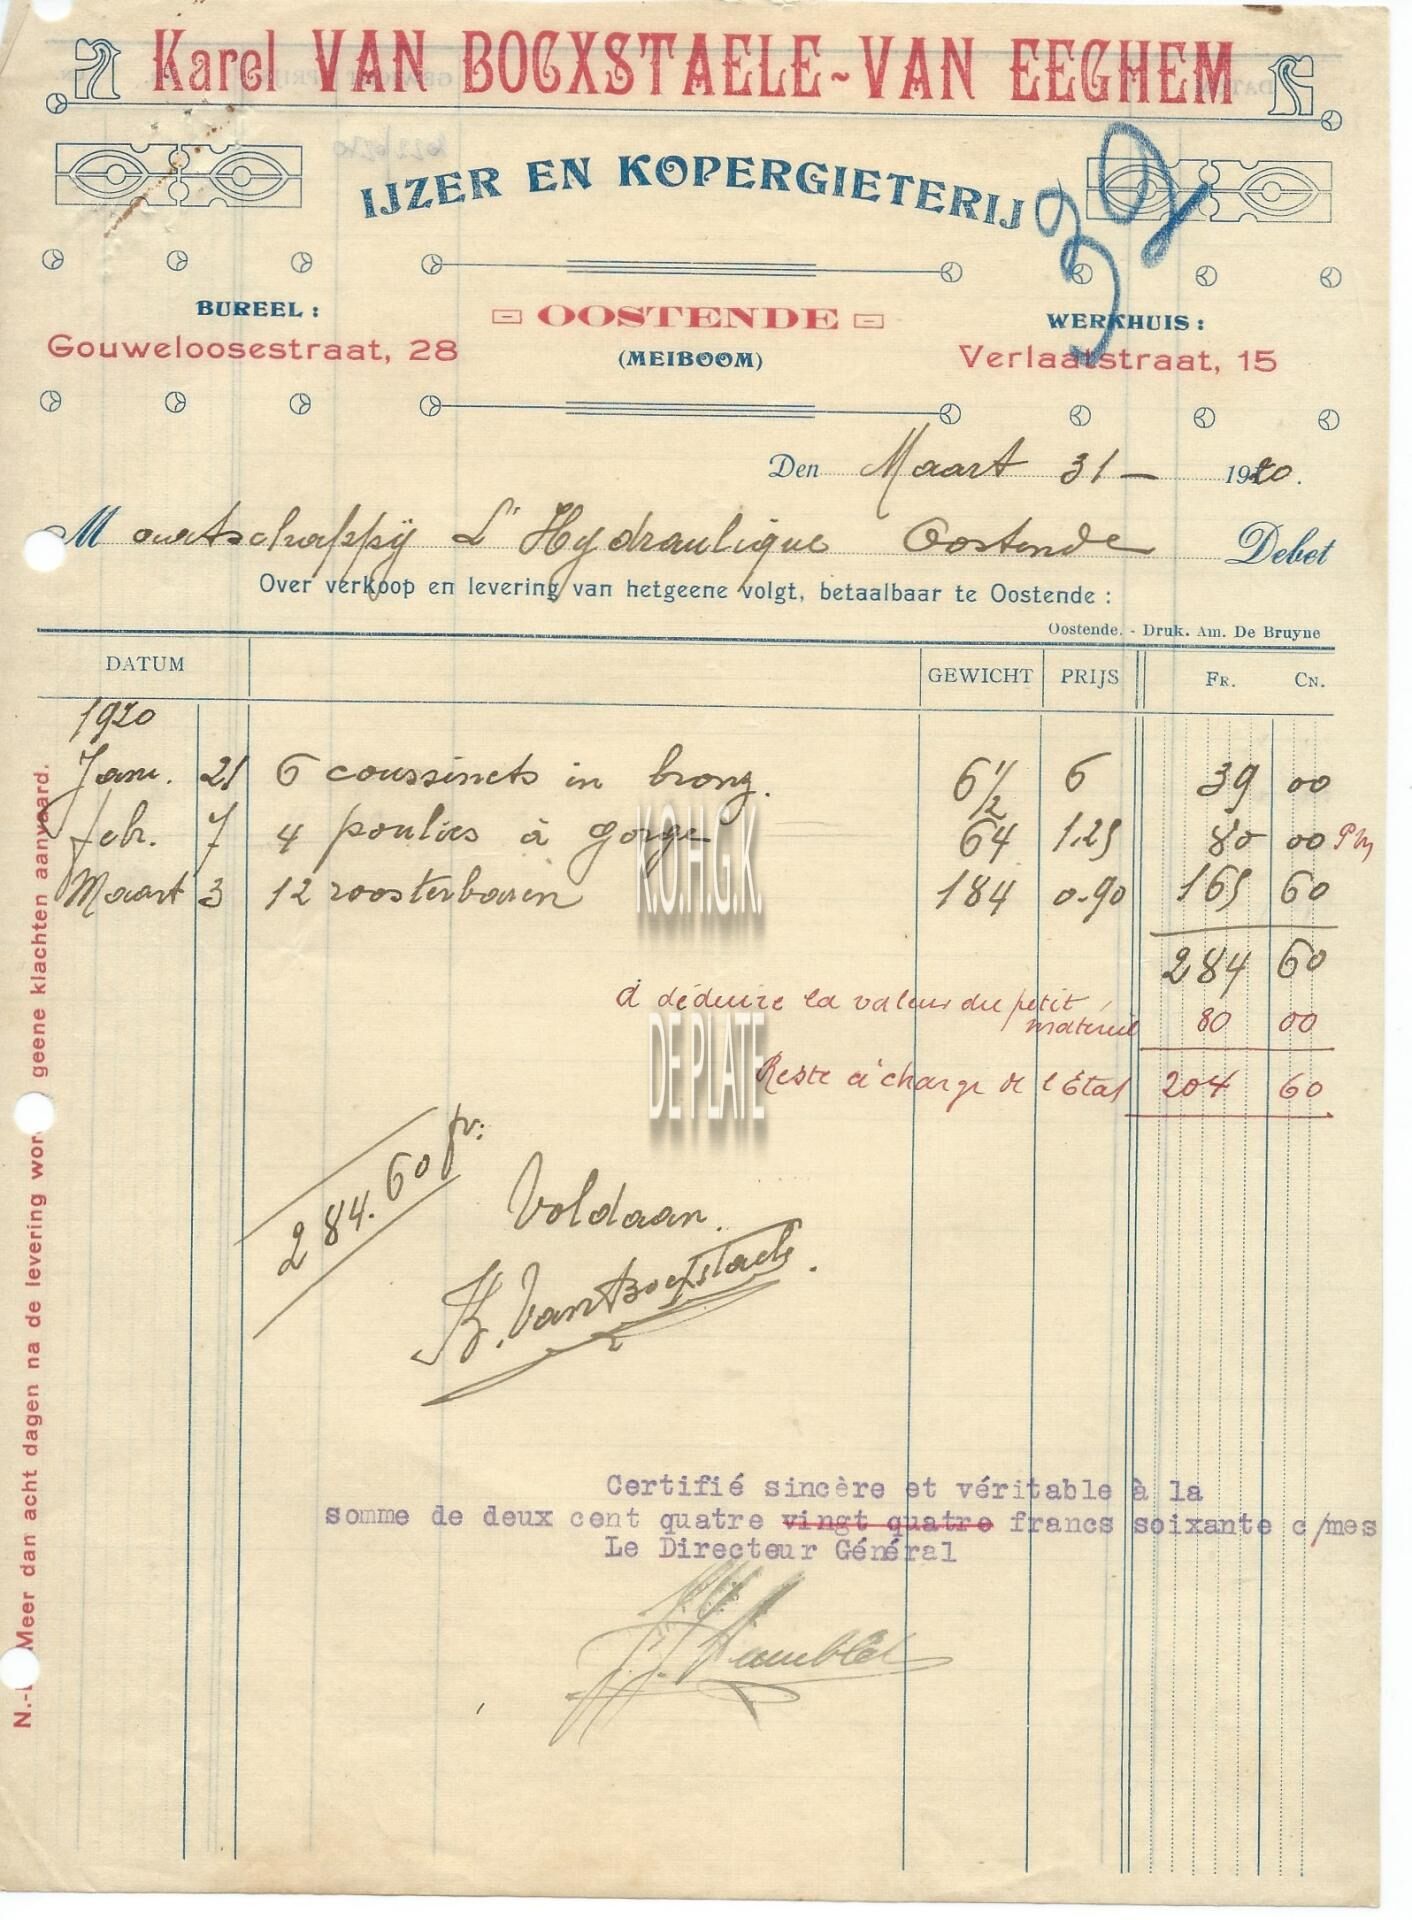 Karel VAN BOCXSTAELE-VAN EEGHEM
IJZER EN KOPERGIETERIJ
39
BUREEL :
Gouweloosestraat, 28
OOSTENDE
(MEIBOOM)
WERKHUIS :
Verlaatstraat, 15
Den Maart 31 - 1920.
Maatschappij L'Hydraulique Oostende Debet
Over verkoop en levering van hetgeene volgt, betaalbaar te Oostende :
Oostende. - Druk. Am. De Bruyne
DATUM GEWICHT PRIJS FR. CN.
1920
Janu. 21 6 coussinets in bronz. 6 1/2 6 39 00
Febr. 7 4 poulies à gorge 64 1.25 80 00 PM
Maart 3 12 roosterbaren 184 0.90 165 60
284 60
à déduire la valeur du petit
matériel 80 00
Reste à charge de l'État 204 60
K.O.H.G.K.
DE PLATE
284.60 fr:
Voldaan.
K. Van Bocxstaele.
Certifié sincère et véritable à la
somme de deux cent quatre vingt quatre francs soixante c/mes
Le Directeur Général
Meer dan acht dagen na de levering geene klachten aanvaard.